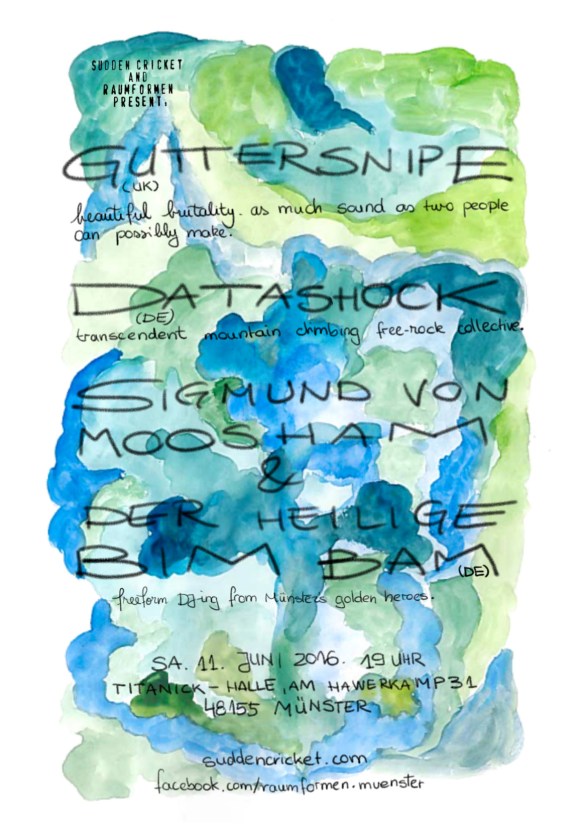 SUDDEN CRICKET
AND
RAUMFORMEN
PRESENT:
GUTTERSNIPE
(UK)
beautiful brutality. as much sound as two people
can possibly make.
DATASHOCK
(DE)
transcendent mountain climbing free-rock collective.
SIGMUND VON
MOOSHAM
&
DER HEILIGE
BIM BAM
(DE)
freeform DJ-ing from Münsters golden heroes.
SA. 11. JUNI 2016. 19 UHR
TITANICK-HALLE, AM HAWERKAMP 31
48155 MÜNSTER
suddencricket.com
facebook.com/raumformen.muenster